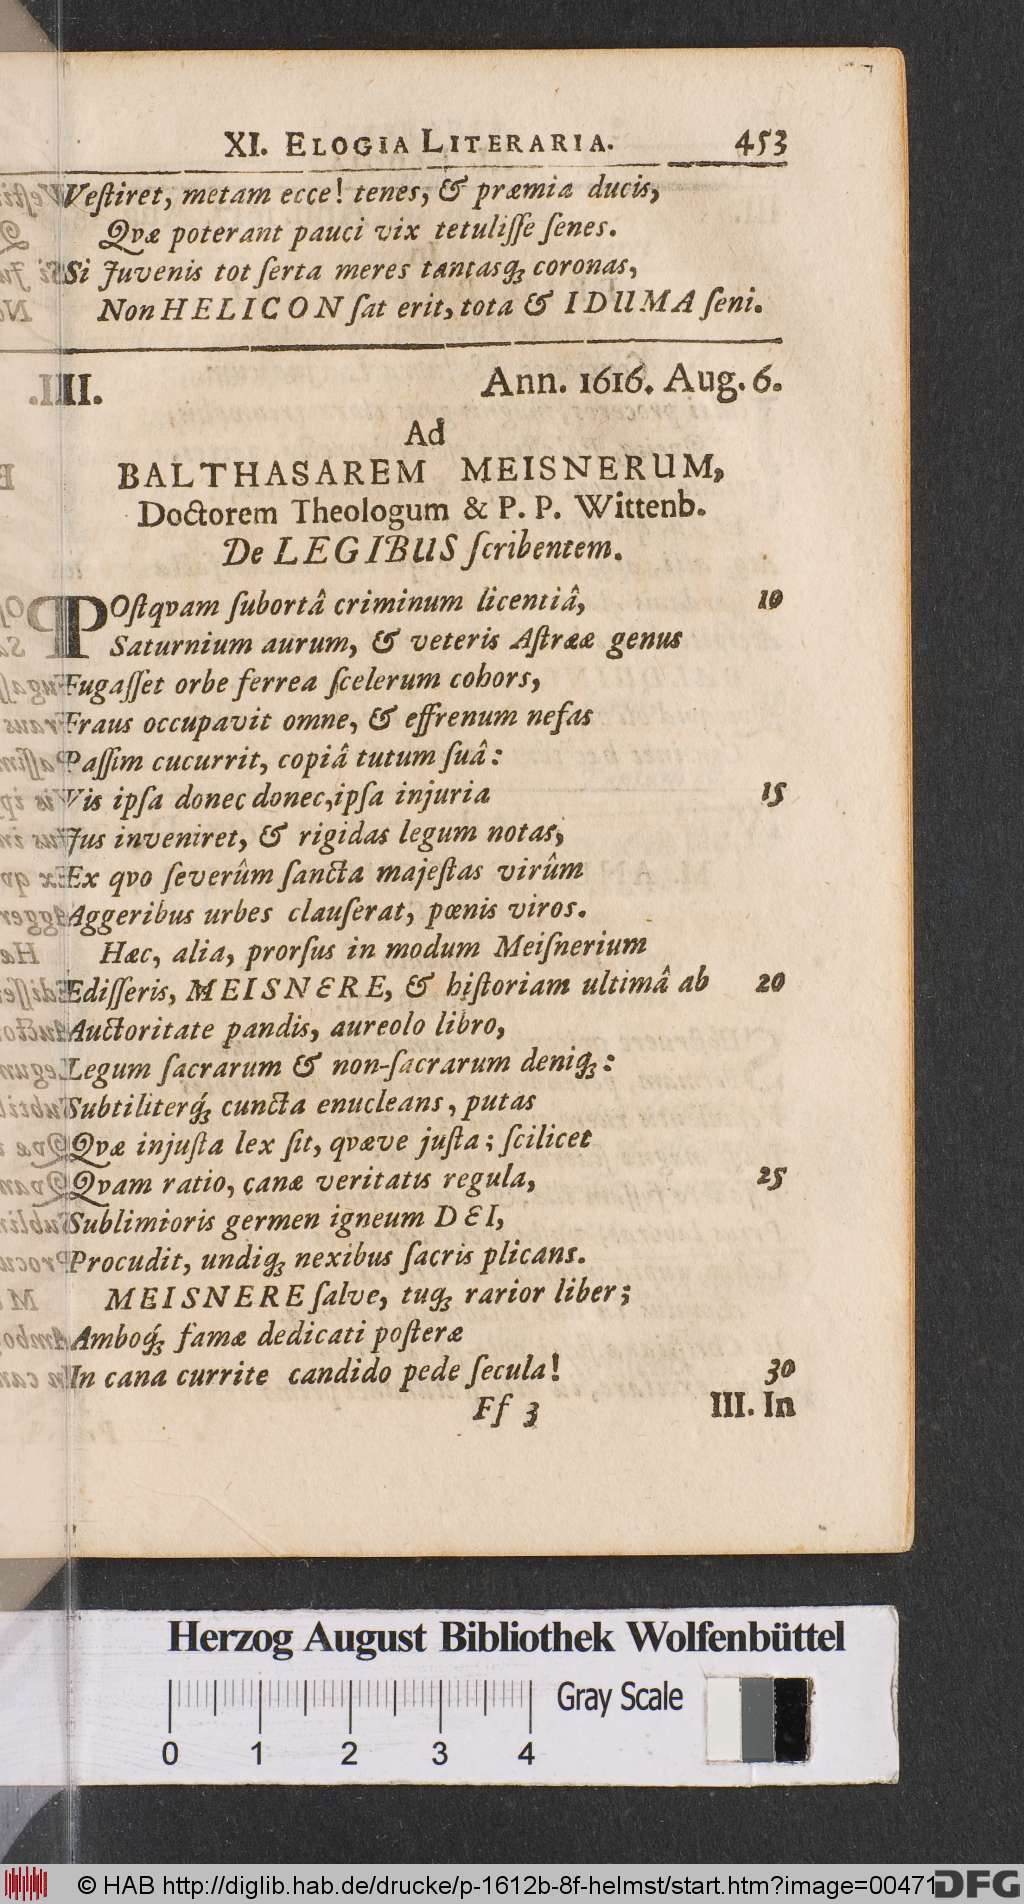 XI. ELOGIA LITERARIA. 453
Veſtiret, metam ecce! tenes, & præmia ducis,
Qvæ poterant pauci vix tetuliſſe ſenes.
Si Juvenis tot ſerta meres tantasq́ꝫ coronas,
Non HELICON ſat erit, tota & IDUMA ſeni.
II. Ann. 1616. Aug. 6.
Ad
BALTHASAREM MEISNERUM,
Doctorem Theologum & P. P. Wittenb.
De LEGIBUS ſcribentem.
POſtqvam ſubortâ criminum licentiâ, 10
Saturnium aurum, & veteris Aſtrææ genus
Fugaſſet orbe ferrea ſcelerum cohors,
Fraus occupavit omne, & effrenum nefas
Paſſim cucurrit, copiâ tutum ſuâ:
Vis ipſa donec donec, ipſa injuria 15
Jus inveniret, & rigidas legum notas,
Ex qvo ſeverûm ſancta majeſtas virûm
Aggeribus urbes clauſerat, pœnis viros.
Hæc, alia, prorſus in modum Meiſnerium
Ediſſeris, MEISNERE, & hiſtoriam ultimâ ab 20
Auctoritate pandis, aureolo libro,
Legum ſacrarum & non-ſacrarum deniqꝫ:
Subtiliterq́ꝫ cuncta enucleans, putas
Qvæ injuſta lex ſit, qvæve juſta; ſcilicet
Qvam ratio, canæ veritatis regula, 25
Sublimioris germen igneum DEI,
Procudit, undiqꝫ nexibus ſacris plicans.
MEISNERE ſalve, tuqꝫ rarior liber;
Amboq́ꝫ famæ dedicati poſteræ
In cana currite candido pede ſecula! 30
Ff 3 III. In
Herzog August Bibliothek Wolfenbüttel
Gray Scale
0 1 2 3 4
© HAB http://diglib.hab.de/drucke/p-1612b-8f-helmst/start.htm?image=00471
DFG